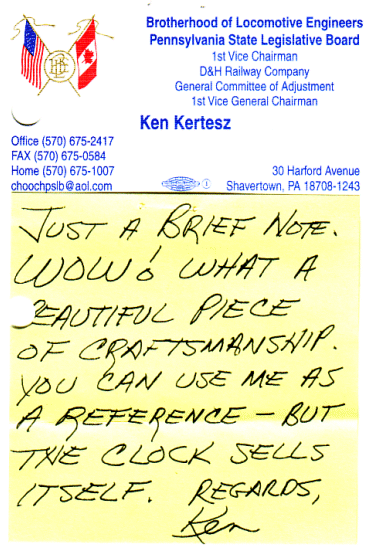 Brotherhood of Locomotive Engineers
Pennsylvania State Legislative Board
1st Vice Chairman
D&H Railway Company
General Committee of Adjustment
1st Vice General Chairman
Ken Kertesz
Office (570) 675-2417
FAX (570) 675-0584
Home (570) 675-1007
choochpslb@aol.com
30 Harford Avenue
Shavertown, PA 18708-1243
JUST A BRIEF NOTE.
WOW! WHAT A
BEAUTIFUL PIECE
OF CRAFTSMANSHIP.
YOU CAN USE ME AS
A REFERENCE - BUT
THE CLOCK SELLS
ITSELF. REGARDS,
Ken